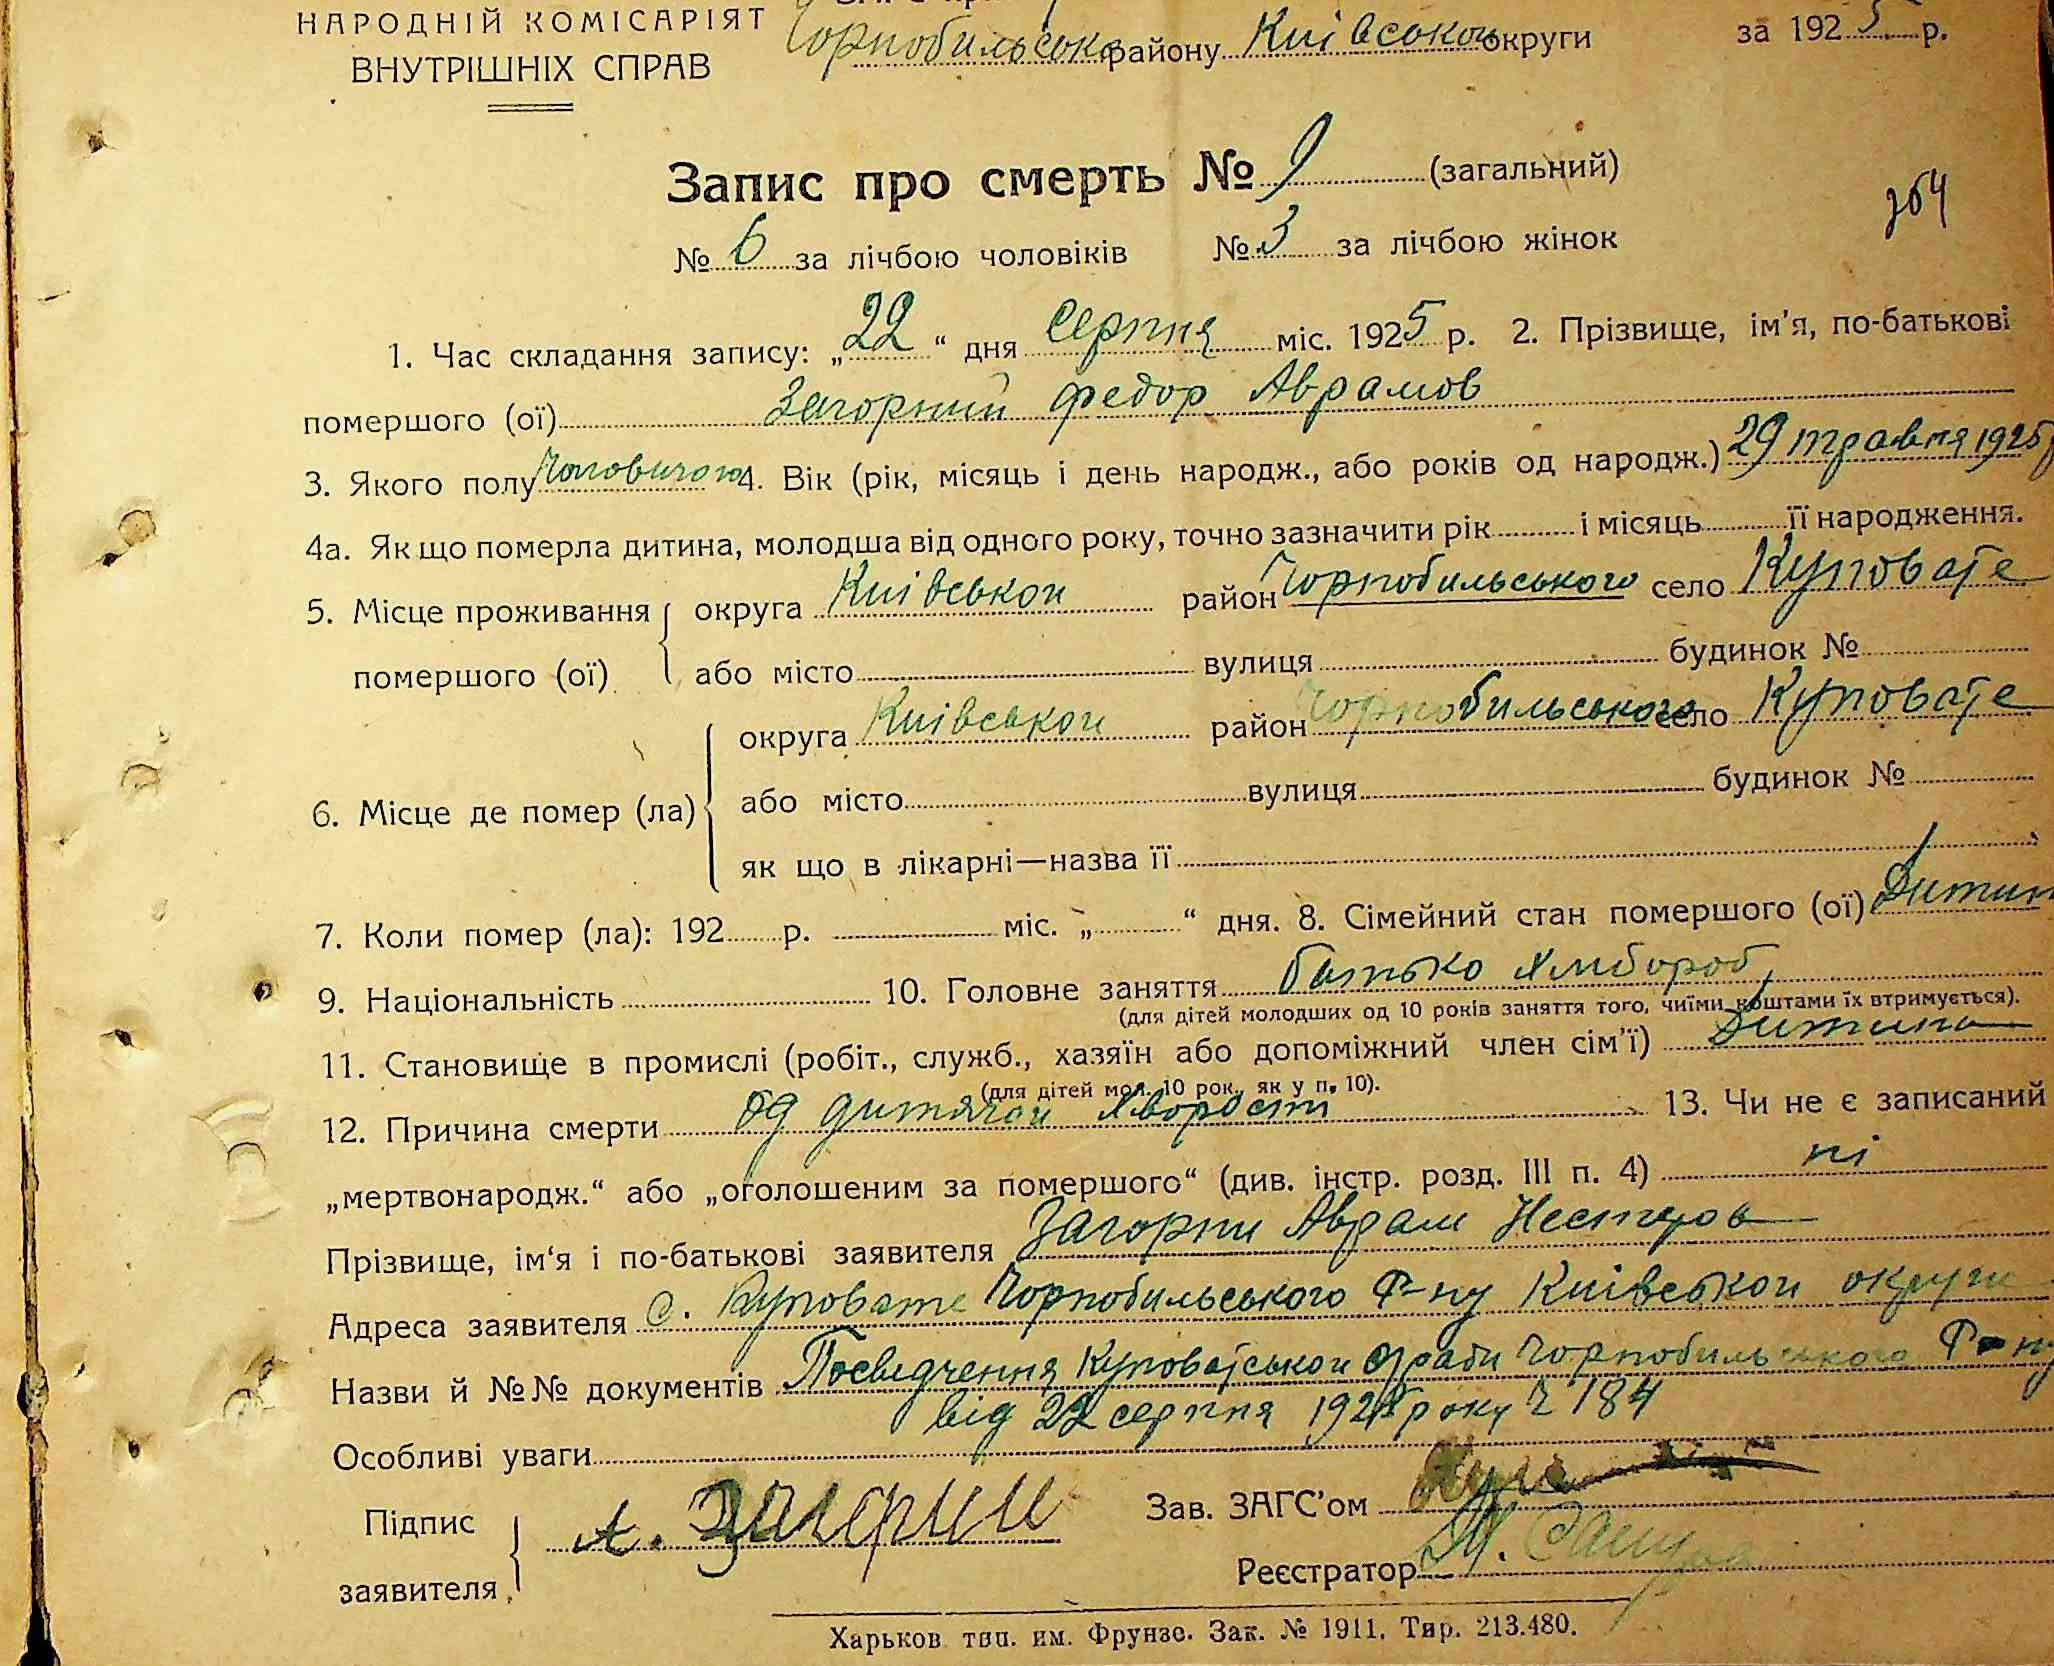 НАРОДНІЙ КОМІСАРІЯТ
ВНУТРІШНІХ СПРАВ
Чорнобильсько району Київської округи за 1925 р.
Запис про смерть № 9 (загальний)
264
№ 6 за лічбою чоловіків № 3 за лічбою жінок
1. Час складання запису: „22“ дня серпня міс. 1925 р. 2. Прізвище, ім'я, по-батькові
помершого (ої) Загорний Федор Аврамов
3. Якого полу Чоловичого 4. Вік (рік, місяць і день народж., або років од народж.) 29 травня 1925 р
4а. Як що померла дитина, молодша від одного року, точно зазначити рік і місяць її народження.
5. Місце проживання округа Київськои район Чорнобильського село Куповате
помершого (ої) або місто вулиця будинок №
округа Київськои район Чорнобильського село Куповате
6. Місце де помер (ла) або місто вулиця будинок №
як що в лікарні—назва її
7. Коли помер (ла): 192 р. міс. „ “ дня. 8. Сімейний стан помершого (ої) Дитин
9. Національність 10. Головне заняття батько хлібороб
(для дітей молодших од 10 років заняття того, чиїми коштами їх втримується).
11. Становище в промислі (робіт., служб., хазяїн або допоміжний член сім'ї) Дитина
(для дітей мол. 10 рок., як у п. 10).
12. Причина смерти од дитячои хворости 13. Чи не є записаний
„мертвонародж.“ або „оголошеним за помершого“ (див. інстр. розд. III п. 4) ні
Прізвище, ім'я і по-батькові заявителя Загорни Аврам Нестеров
Адреса заявителя с. Куповате Чорнобильського Р-ну Київськои округи
Назви й №№ документів Посвідчення Куповатськои с/ради Чорнобильського Р-ну
від 22 серпня 1925 року Ч 184
Особливі уваги
Підпис
заявителя А. Загорний
Зав. ЗАГС'ом
Реєстратор
Харьков тип. им. Фрунзе. Зак. № 1911. Тир. 213.480.